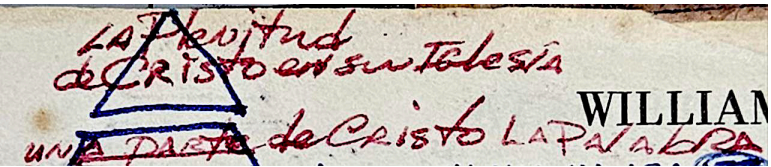 LA Plenitud
de CRISTO en su Iglesia
WILLIAM
UNA PARTE de CRISTO LA PALABRA